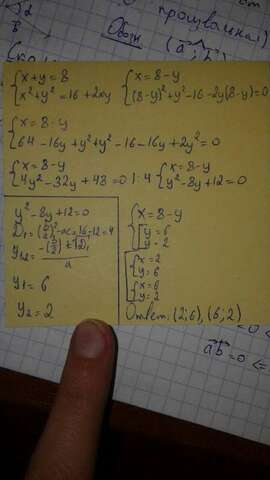 прощвання)
Озн.
(a; b)
{x+y=8 {x=8-y
{x²+y²=16+2xy {(8-y)²+y²-16-2y(8-y)=0
{x=8-y
{64-16y+y²+y²-16-16y+2y²=0
{x=8-y {x=8-y
{4y²-32y+48=0 |:4 {y²-8y+12=0
y²-8y+12=0
D₁=(b/2)²-ac=16-12=4
y₁,₂=(-(b/2)±√D₁)/a
y₁=6
y₂=2
{x=8-y
{[y=6
[y=2
[{x=2
{y=6
[{x=6
{y=2
Ответ: (2;6), (6;2)
ab=0 <=